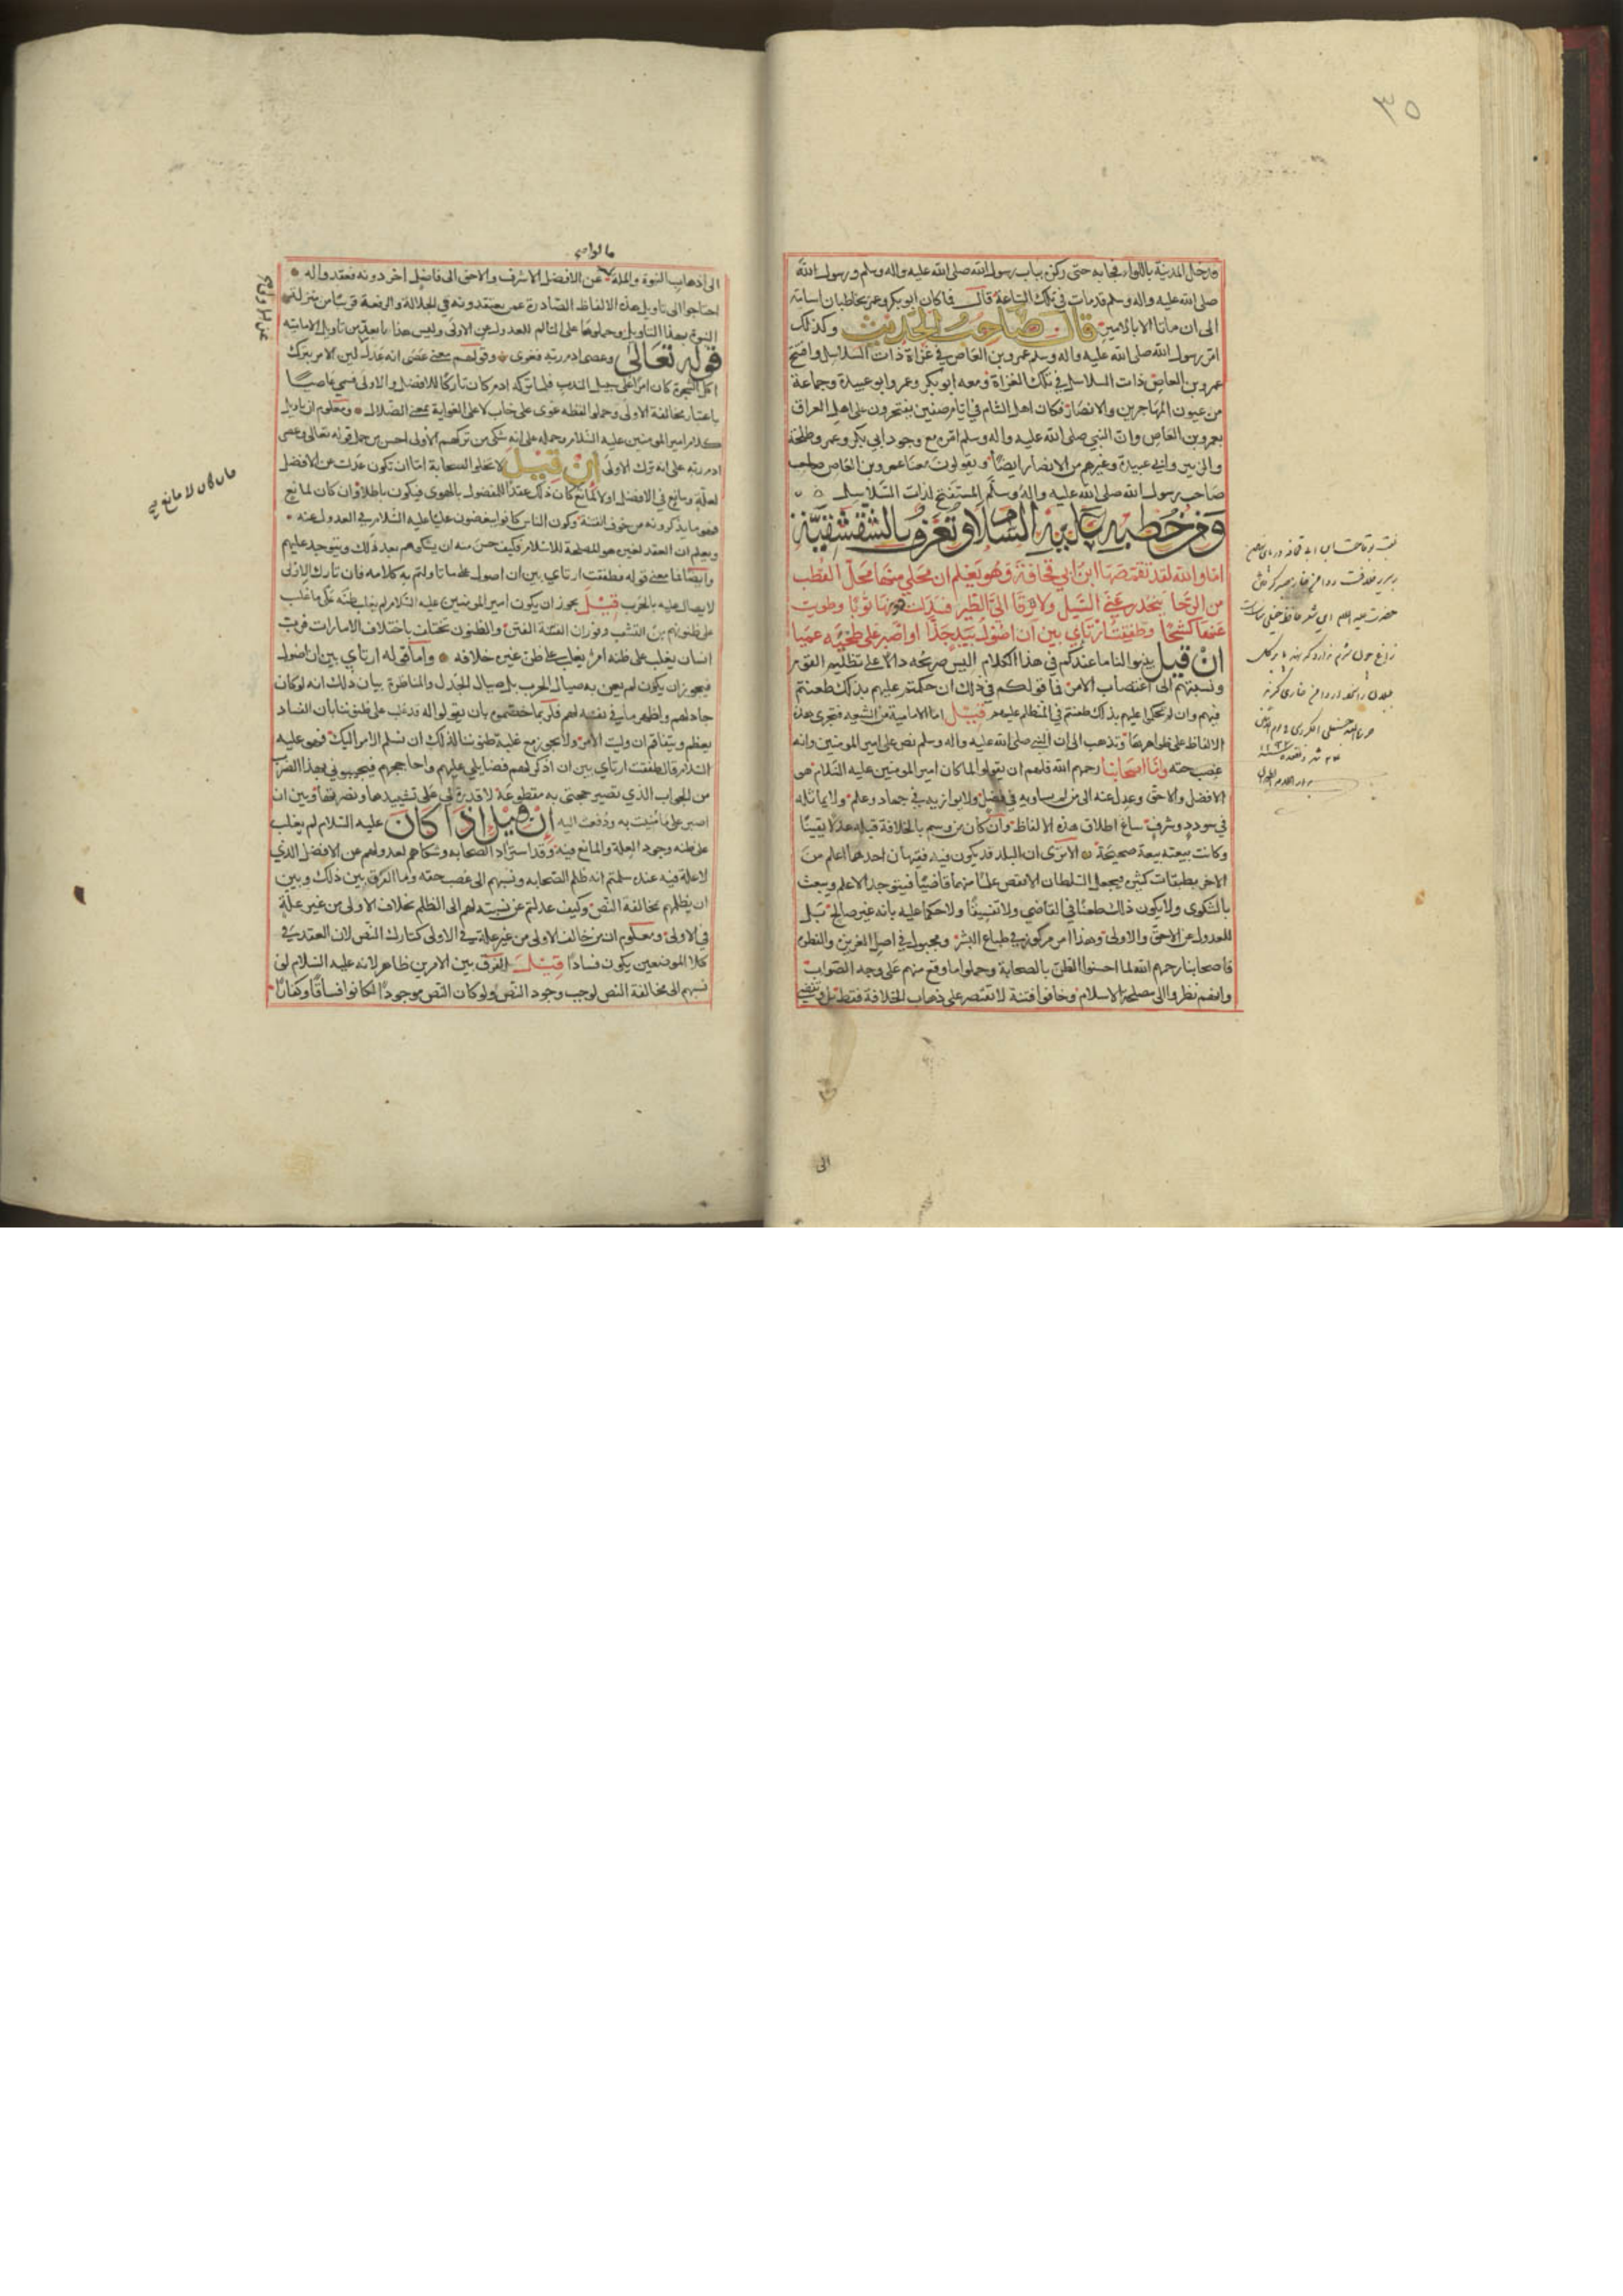 ٣٥
ودخل المدينة باللواء فجا به حتى ركن بباب رسول الله صلى الله عليه واله وسلم ورسول الله
صلى الله عليه واله وسلم قد مات في تلك الساعة قال فما كان ابو بكر وعمر يخاطبان اسامة
الى ان ماتا الا بالامير قال صاحب الحديث وكذلك
امر رسول الله صلى الله عليه واله وسلم عمرو بن العاص في غزاة ذات السلاسل وافتتح
عمرو بن العاص ذات السلاسل في تلك الغزاة ومعه ابو بكر وعمر وابو عبيدة وجماعة
من عيون المهاجرين والانصار فكان اهل الشام في ايام صفين يفتخرون على اهل العراق
بعمرو بن العاص وان النبي صلى الله عليه واله وسلم امره مع وجود ابي بكر وعمر وطلحة
والزبير وابي عبيدة وغيرهم من الانصار ايضا ويقولون معنا عمرو بن العاص
صاحب رسول الله صلى الله عليه واله وسلم المستفتح لذات السلاسل
ومن خطبه عليه السلام وتعرف بالشقشقية
اما والله لقد تقمصها ابن ابي قحافة وهو يعلم ان محلي منها محل القطب
من الرحا ينحدر عني السيل ولا يرقا الي الطير فسدلت دونها ثوبا وطويت
عنها كشحا وطفقت ارتاي بين ان اصول بيد جذا او اصبر على طخيه عميا
ان قيل بينوا لنا ما عندكم في هذا الكلام اليس صريحه دالا على تظليم القوم
ونسبتهم الى اغتصاب الامر فما قولكم في ذلك ان حكمتم عليهم بذلك طعنتم
فيهم وان لم تحكموا عليهم بذلك طعنتم في المتظلم عليهم قيل اما الامامية من الشيعة فتجري هذه
الالفاظ على ظواهرها وتذهب الى ان النبي صلى الله عليه واله وسلم نص على امير المومنين وانه
غصب حقه واما اصحابنا رحمهم الله فلهم ان يقولوا لما كان امير المومنين عليه السلام هو
الافضل والاحق وعدل عنه الى من لا يساويه في فضل ولا يوازيه في جهاد وعلم ولا يماثله
في سودد وشرف ساغ اطلاق هذه الالفاظ وان كان من وسم بالخلافة قبله عدلا تقيا
وكانت بيعته بيعة صحيحة الا ترى ان البلد قد يكون فيه فقيهان احدهما اعلم من
الاخر بطبقات كثيرة فيجعل السلطان الانقص علما منهما قاضيا فيتوجد الاعلم وينفث
بالشكوى ولا يكون ذلك طعنا في القاضي ولا تفسيقا ولا حكما عليه بانه غير صالح بل
للعدول عن الاحق والاولى وهذا امر مركوز في طباع البشر ومجبول في اصل الغريزة والفطرة
فاصحابنا رحمهم الله لما احسنوا الظن بالصحابة وحملوا ما وقع منهم على وجه الصواب
وانهم نظروا الى مصلحة الاسلام وخافوا فتنة لا تقتصر على ذهاب الخلافة فقط بل وتفضي
الى
الى ذهاب النبوة والملة عن الافضل الاشرف والاحق الى فاضل اخر دونه فعقدوا له
احتاجوا الى تاويل هذه الالفاظ الصادرة عمن يعتقدونه في الجلالة والرفعة قريبا من منزلة
النبوة بهذا التاويل وحملوها على التالم للعدول عن الاولى وليس هذا بابعد من تاويل الامامية
قوله تعالى وعصى ادم ربه فغوى وقولهم معنى عصى انه عدل عن الاولى لان الامر بترك
اكل الشجرة كان امرا على سبيل الندب فلما تركه ادم كان تاركا للافضل والاولى فسمي عاصيا
باعتبار مخالفة الاولى وحملوا لفظه غوى على خاب لا على الغواية بمعنى الضلال ومعلوم ان تاويل
كلام امير المومنين عليه السلام وحمله على انه شكى من تركهم الاولى احسن من حمل قوله تعالى وعصى
ادم ربه على انه ترك الاولى ان قيل لا تخلوا الصحابة اما ان تكون عدلت عن الافضل
لعلة ومانع في الافضل او لا لمانع كان ذلك عقدا للمفضول بالهوى فيكون باطلا وان كان لمانع
فهو ما يذكرونه من خوف الفتنة وكون الناس كانوا يبغضون عليا عليه السلام في العدول عنه
ويعلم ان العقد لغيره هو المصلحة للاسلام فكيف حسن منه ان يشكوهم بعد ذلك ويتوجد عليهم
وايضا فما معنى قوله فطفقت ارتاي بين ان اصول على ما تاولتم به كلامه فان تارك الاولى
لا يصال عليه بالحرب قيل يجوز ان يكون امير المومنين عليه السلام لم يغلب ظنه على ما غلب
على ظنونهم من التشعب وثوران الفتنة والظنون تختلف باختلاف الامارات فرب
انسان يغلب على ظنه امر يغلب على ظن غيره خلافه واما قوله ارتاي بين ان اصول
فيجوز ان يكون لم يعن به صيال الحرب بل صيال الجدل والمناظرة بيان ذلك انه لو كان
جادلهم واظهر ما في نفسه لهم فربما خصموه بان يقولوا له قد غلب على ظنوننا بان الفساد
يعظم ويتفاقم ان وليت الامر ولا يجوز مع غلبة ظنوننا لذلك ان نسلم الامر اليك فهو عليه
السلام قال طفقت ارتاي بين ان اذكر لهم فضايلي عليهم واحاججهم فيجيبوني بهذا الضرب
من الجواب الذي تصير حجتي به مقطوعة لا قدرة لي على تشييدها ونصرتها وبين ان
اصبر على ما منيت به ودفعت اليه ان قيل اذا كان عليه السلام لم يغلب
على ظنه وجود العلة والمانع فيه وقد استزاد الصحابة وشكاهم لعدولهم عن الافضل الذي
لا علة فيه عنده سلمتم انه ظلم الصحابة ونسبهم الى غصب حقه وما الفرق بين ذلك وبين
ان يظلمهم بمخالفة النص وكيف عدلتم عن نسبته لهم الى الظلم بخلاف الاولى من غير علة
في الاولى ومعلوم ان من خالف الاولى من غير علة في الاولى كتارك النص لان العقد في
كلا الموضعين يكون فسادا قيل الفرق بين الامرين ظاهر لانه عليه السلام لو
نسبهم الى مخالفة النص لوجب وجود النص ولو كان النص موجودا لكانوا فساقا او كفارا
فان كان لا مانع